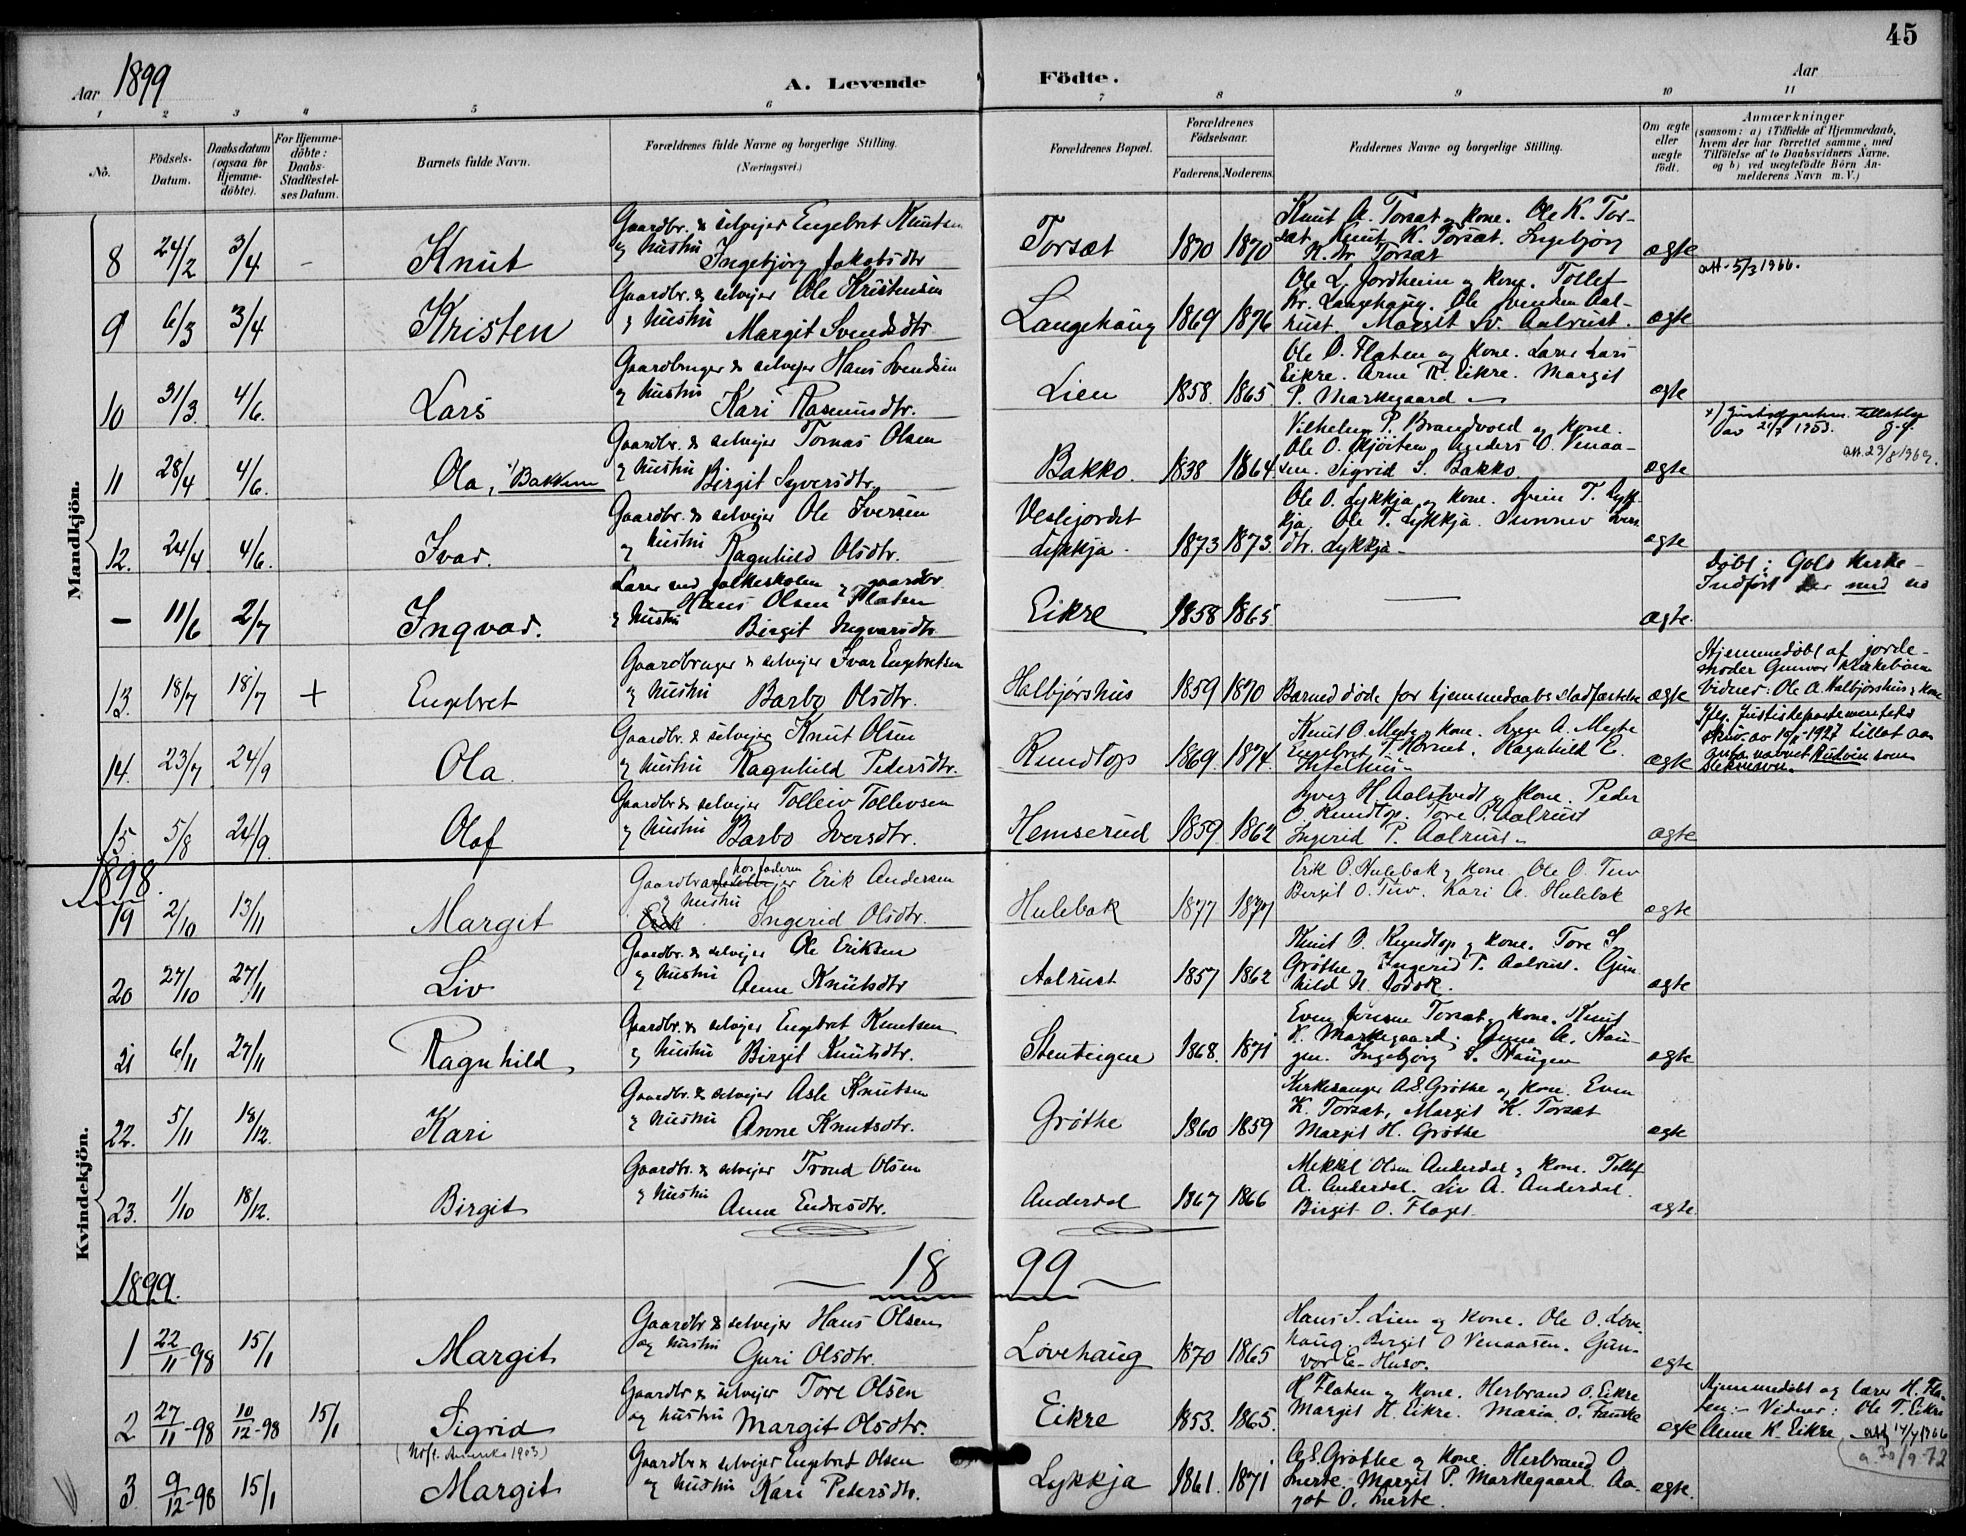 45
Aar 1899
A. Levende Fødte.
Aar
1 2 3 4 5 6 7 8 9 10 11
No. Födsels-Datum. Daabsdatum (ogsaa for Hjemme-döbte). For Hjemme-döbte: Daabs-Stadfæstel-ses Datum. Barnets fulde Navn. Forældrenes fulde Navne og borgerlige Stilling. (Næringsvei.) Forældrenes Bopæl. Forældrenes Födselsaar. Faderens. Moderens. Faddernes Navne og borgerlige Stilling. Om ægte eller uægte födt. Anmærkninger (saasom: a) i Tilfælde af Hjemmedaab, hvem der har forrettet samme, med Tilföielse af to Daabsvidners Navne, og b) ved uægtefödte Börn An-melderens Navn m. V.)
Mandkjön.
8 24/2 3/4 – Knut
Gaardbr. & selvejer Engebret Knutsen
og hustru Ingebjørg Jakobsdtr
Torsæt 1870 1870
Knut A. Torsæt og kone. Ole K. Tor-
sæt. Knut K. Torsæt. Ingebjørg
K. Torsæt
ægte
9 6/3 3/4 Kristen
Gaardbr. & selvejer Ole Kristensen
og hustru Margit Svendsdtr
Langehaug 1869 1876
Ole L. Jordheim og kone. Tollef
Kr. Langehaug. Ole Svendsen Aal-
rust. Margit Sv. Aalrust.
ægte
att. 5/3 1966.
10 31/3 4/6 Lars
Gaardbruger & selvejer Hans Svendsen
og hustru Kari Rasmusdtr.
Lien 1858. 1865.
Ole O. Flaten og kone. Lærer Lars
Eikre. Arne T. Eikre. Margit
P. Markegaard
ægte
11 28/4 4/6. Ola, x/ Bakken
Gaardbr. & selvejer Tomas Olsen
og hustru Birgit Syversdtr.
Bakko. 1838 1864
Vilhelm P. Brandvold og kone.
Ole O. Anders O. Venaa-
sen. Sigrid S. Bakko
ægte
x) tillatelse
av 21/3 1953.
att. 23/8 1969.
12. 24/4 4/6. Ivar.
Gaardbr. & selvejer Ole Iversen
og hustru Ragnhild Olsdtr.
Veslejordet
Lykkja. 1873 1873
Ole O. Lykkja og kone. Svein T. Lyk-
kja. Ole T. Lykkja. Sunnev Ivers
dtr. Lykkja
ægte
– 11/6 2/7 Ingvar.
Lærer ved folkeskolen og gaardbr.
Hans Olsen Flaten
og hustru Birgit Ingvarsdtr.
Eikre 1858 1865 —
ægte.
Døbt i Gols kirke –
Indført der med no
13. 18/7 18/7 + Engebret
Gaardbruger & selvejer Ivar Engebretsen
og hustru Barbo Olsdtr.
Halbjørshus 1859 1870
Barnet døde før hjemmedaabs stadfæstelse
ægte
Hjemmedøbt af jorde-
moder Gunvor Kirkebøen
Vidner: Ole A. Halbjørshus & kone
14. 23/7 24/9 Ola
Gaardbr. & selvejer Knut Olsen
og hustru Ragnhild Pedersdtr.
Rundtop 1869. 1874.
Knut O. Mythe og kone. A. Mythe
Engebret T. Ragnhild E.
ægte
Ifg. Justisdepartementets
skriv. av 10/5 1927 tillat aa
anta navnet Rudvin som
slektsnavn.
15. 5/8 24/9. Olaf
Gaardbr & selvejer Tolleiv Tollevsen
og hustru Barbo Iversdtr.
Hemserud 1859. 1862
Syver H. Aalstvedt og kone. Peder
O. Rundtop. Tore P. Aalrust
Ingerid P. Aalrust.
ægte
1898.
Kvindekjön.
19 2/10 13/11 Margit
Gaardbr hos faderen Erik Andersen
og hustru Ingerid Olsdtr.
Hulebak 1877 1877
Erik O. Hulebak og kone Ole O. Tuv
Birgit O. Tuv. Kari A. Hulebak
ægte
20 27/10 27/11 Liv
Gaardbr. & selvejer Ole Eriksen
og hustru Anne Knutsdtr
Aalrust 1857 1862
Knut O. Rundtop og kone. Tore S.
Grøthe og Ingerid T. Aalrust. Gun
hild N.
ægte
21 6/11 27/11 Ragnhild
Gaardbr. & selvejer Engebret Knutsen
og hustru Birgit Knutsdtr.
Stenteigen 1868. 1871
Even Torsæt og kone. Knut
K. Markegaard. Anne A. Hau-
gen. Ingebjørg S. Haugen
ægte
22. 5/11 18/12. Kari
Gaardbr. & selvejer Asle Knutsen
og hustru Anne Knutsdtr.
Grøthe 1860 1859
Kirkesanger A.S. Grøthe og kone. Even
K. Torsæt, Margit K. Torsæt
Margit H. Grøthe
ægte
23. 1/10 18/12. Birgit
Gaardbr. & selvejer Trond Olsen
og hustru Anne Endresdtr.
Anderdal 1867 1866
Mekkel Olsen Anderdal og kone. Tollef
A. Anderdal. Liv A. Anderdal.
Birgit O. Flaget
ægte
1899. — 18 99 —
1 22/11-98 15/1 Margit
Gaardbr & selvejer Hans Olsen
og hustru Guri Olsdtr.
Løvehaug 1870 1865
Hans S. Lien og kone. Ole O. Løve-
haug Birgit O Venaasen. Gun-
vor E. Huso.
ægte
2 27/11-98 10/12-98 15/1 Sigrid
Gaardbr & selvejer Tore Olsen
og hustru Margit Olsdtr.
Eikre 1853. 1865.
H Flaten og kone. Herbrand O. Eikre
Margit H. Eikre. Maria O. Fauske
ægte
Hjemmedøbt og lærer H. Fla-
ten. – Vidner: Ole T. Eikre
Anne K. Eikre att 14/4 1966
(Utfl. Amerika 1903)
3 9/12-98 15/1 Margit
Gaardbr & selvejer Engebret Olsen
og hustru Kari Pedersdtr.
Lykkja 1861. 1871
A.S. Grøthe og kone. Herbrand O
Snerte. Margit P. Markegaard Aa-
got O. Snerte.
ægte.
a 30/9-72